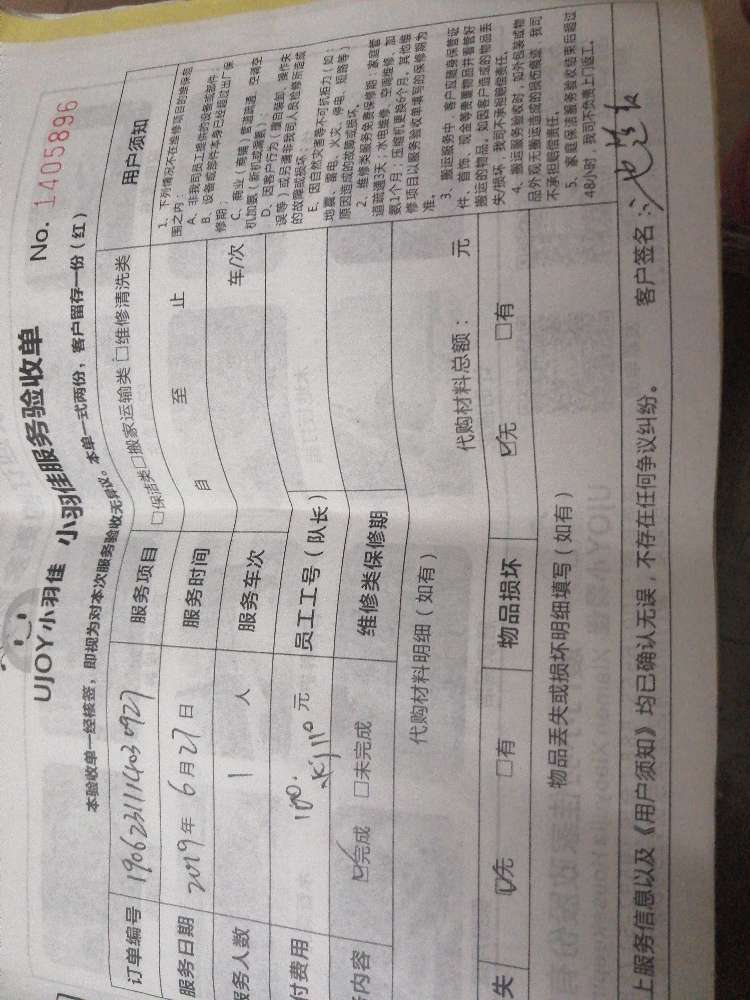 UJOY小羽佳 小羽佳服务验收单 No. 1405896
本验收单一经核签，即视为对本次服务验收无异议。本单一式两份，客户留存一份（红）
订单编号
服务项目 □保洁类□搬家运输类□维修清洗类
服务日期 2019年6月27日
服务时间 自 至 止
务人数 1 人
服务车次 车/次
付费用 元
员工工号（队长）
内容 ☑完成 □未完成
维修类保修期
代购材料明细（如有） 代购材料总额： 元
失 ☑无 □有 物品损坏 ☑无 □有
物品丢失或损坏明细填写（如有）
用户须知
1、下列情况不在维修项目的维保范
围之内：
A、非我司员工维修的设备或部件；
B、设备或部件本身已经超过出厂保
修期
C、商业（商铺）管道疏通、空调空
机加氨（新机或漏氨）；
D、因客户行为（擅自装卸、操作失
误等）或另请非我司人员检修所造成
的故障或损坏；
E、因自然灾害等不可抗拒力（如：
地震、雷电、火灾、停电、短路等）
原因造成的故障或损坏。
2、维修类服务免费保修期：家庭管
道疏通3天；水电维修、空调维修、加
氨1个月；压缩机更换6个月，其他维
修项目以服务验收单填写的保修期为
准。
3、搬运服务中，客户应随身保管证
件、首饰、现金等贵重物品并看管好
搬运的物品，如因客户造成的物品丢
失/损坏，我司不承担赔偿责任。
4、搬运服务验收时，如外包装或物
品外观无搬运造成的损伤痕迹，我司
不承担赔偿责任。
5、家庭保洁服务验收结束后超过
48小时，我司不负责上门返工。
上服务信息以及《用户须知》均已确认无误，不存在任何争议纠纷。 客户签名：